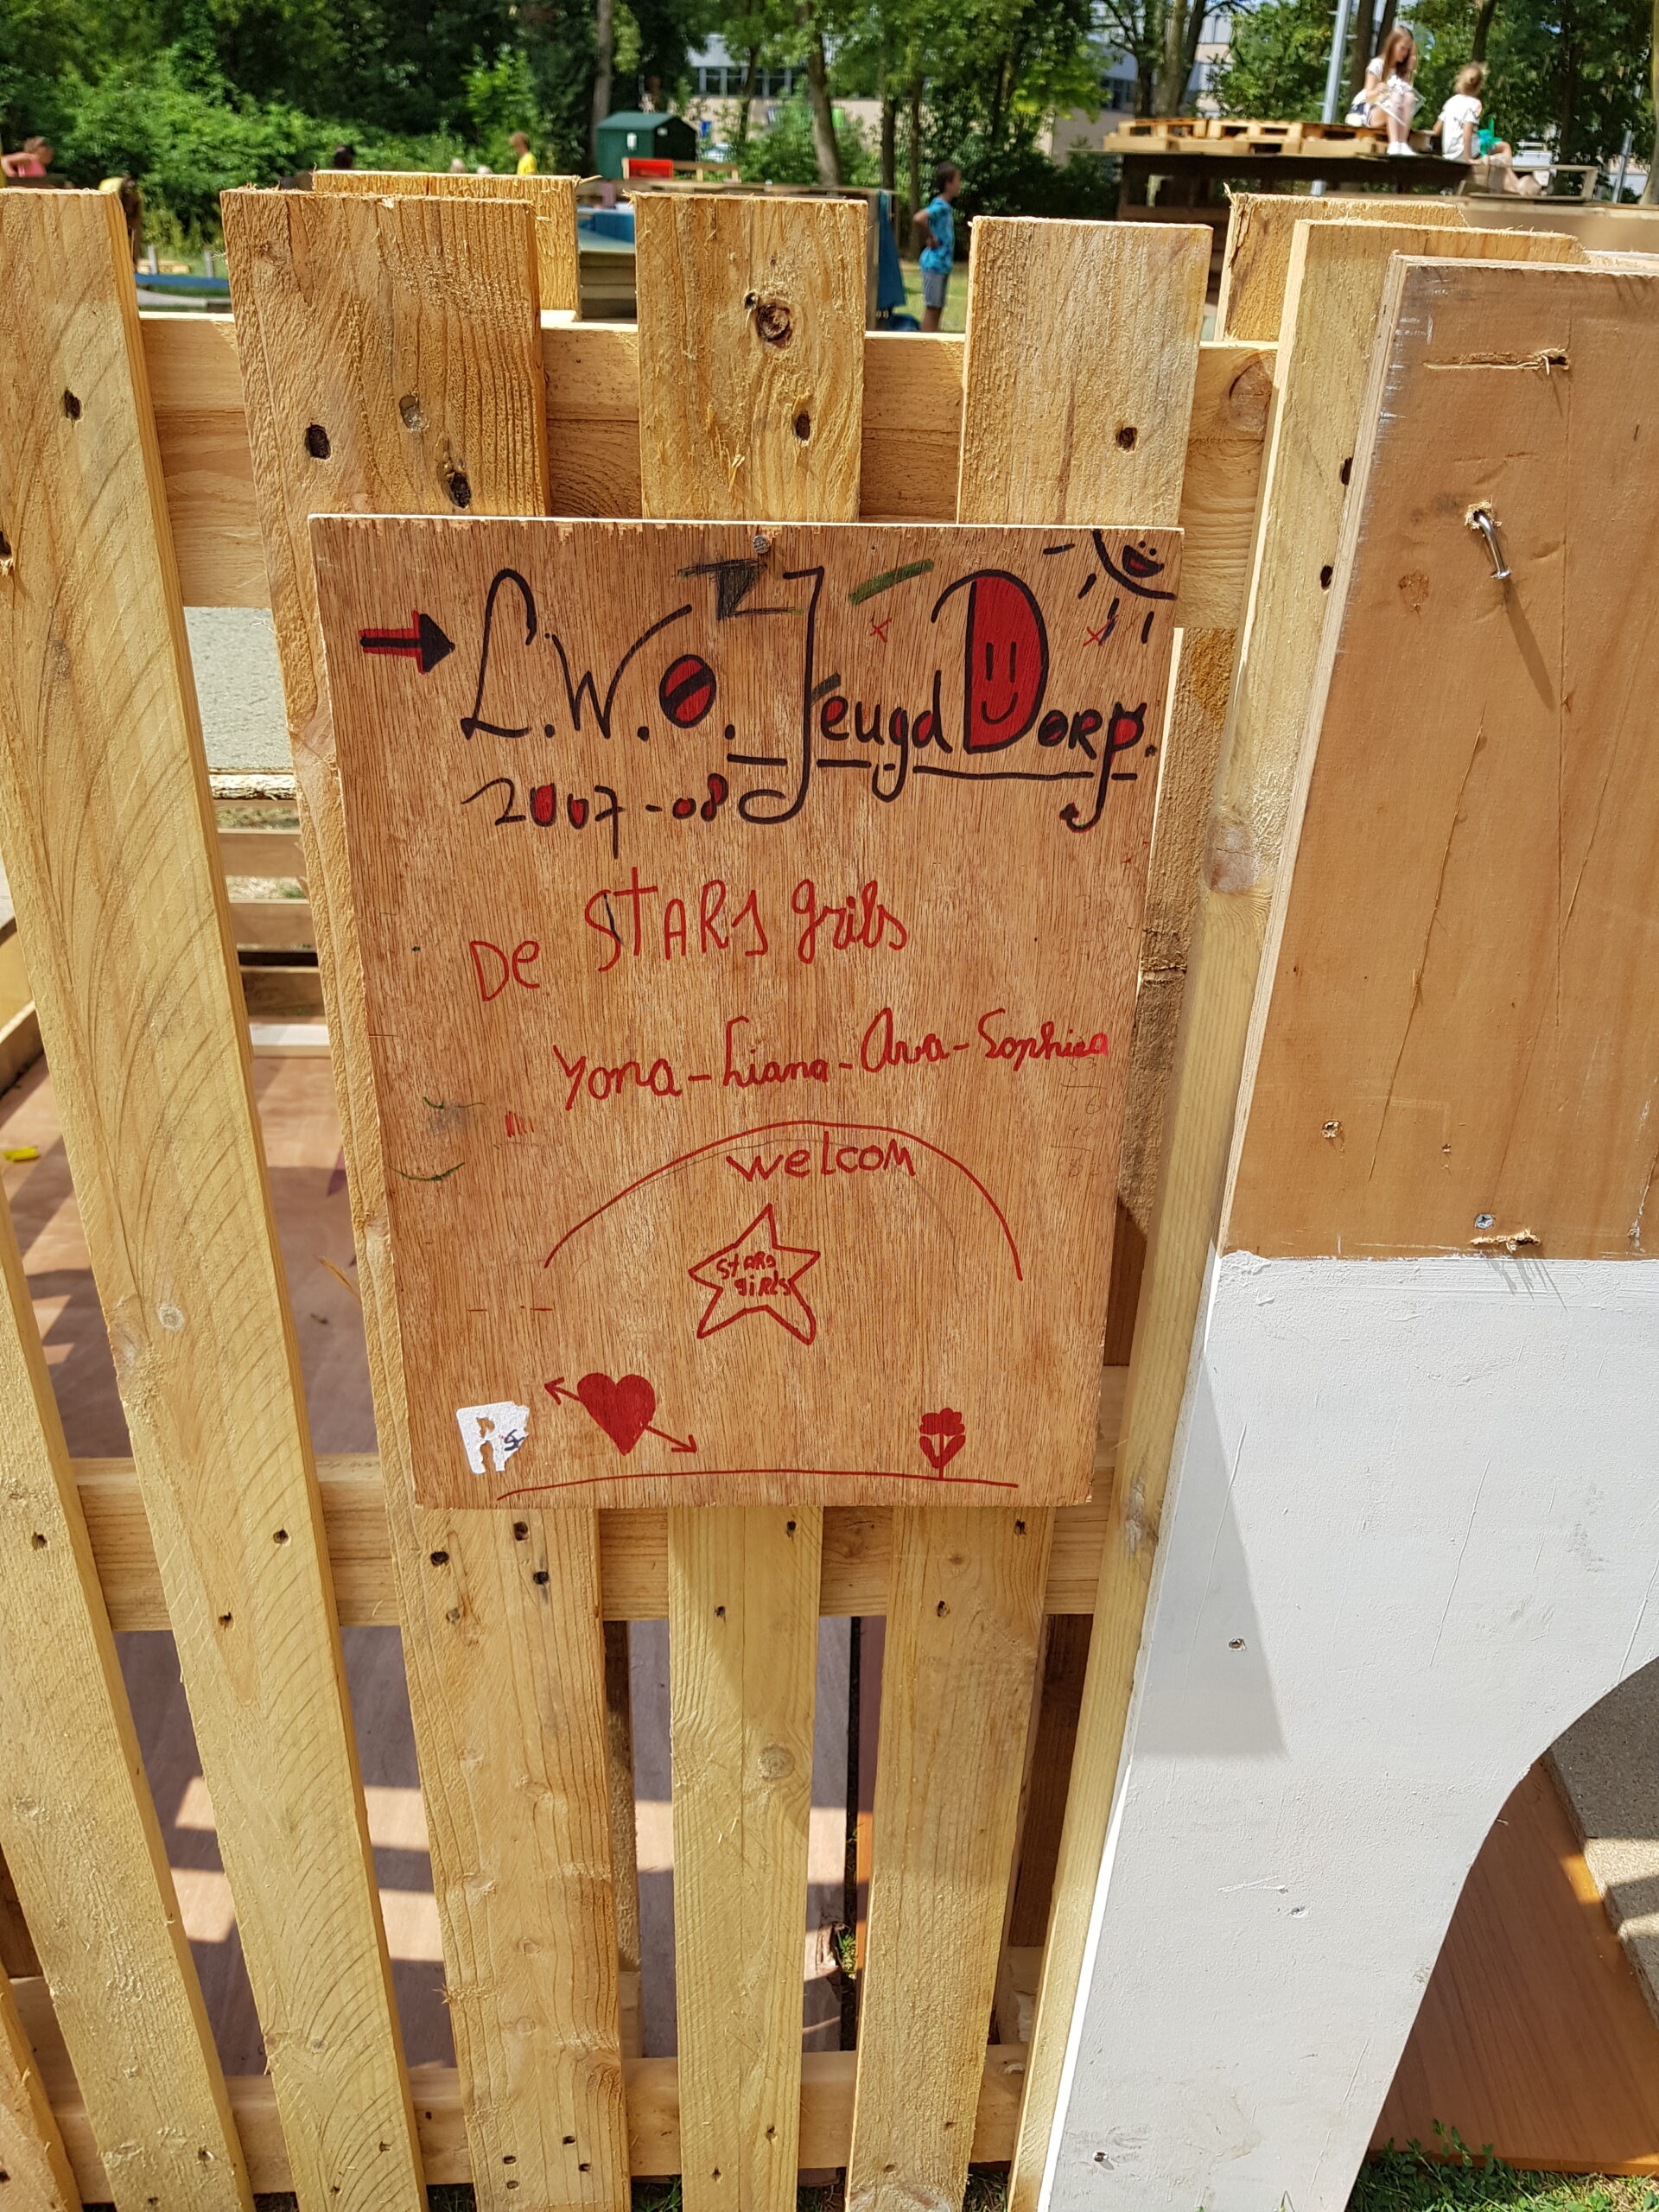 L.W.O. JeugdDorp.
2007-08
De STARS grils
Yona-Liana-Ava-Sophiea
welcom
STARS
giRls